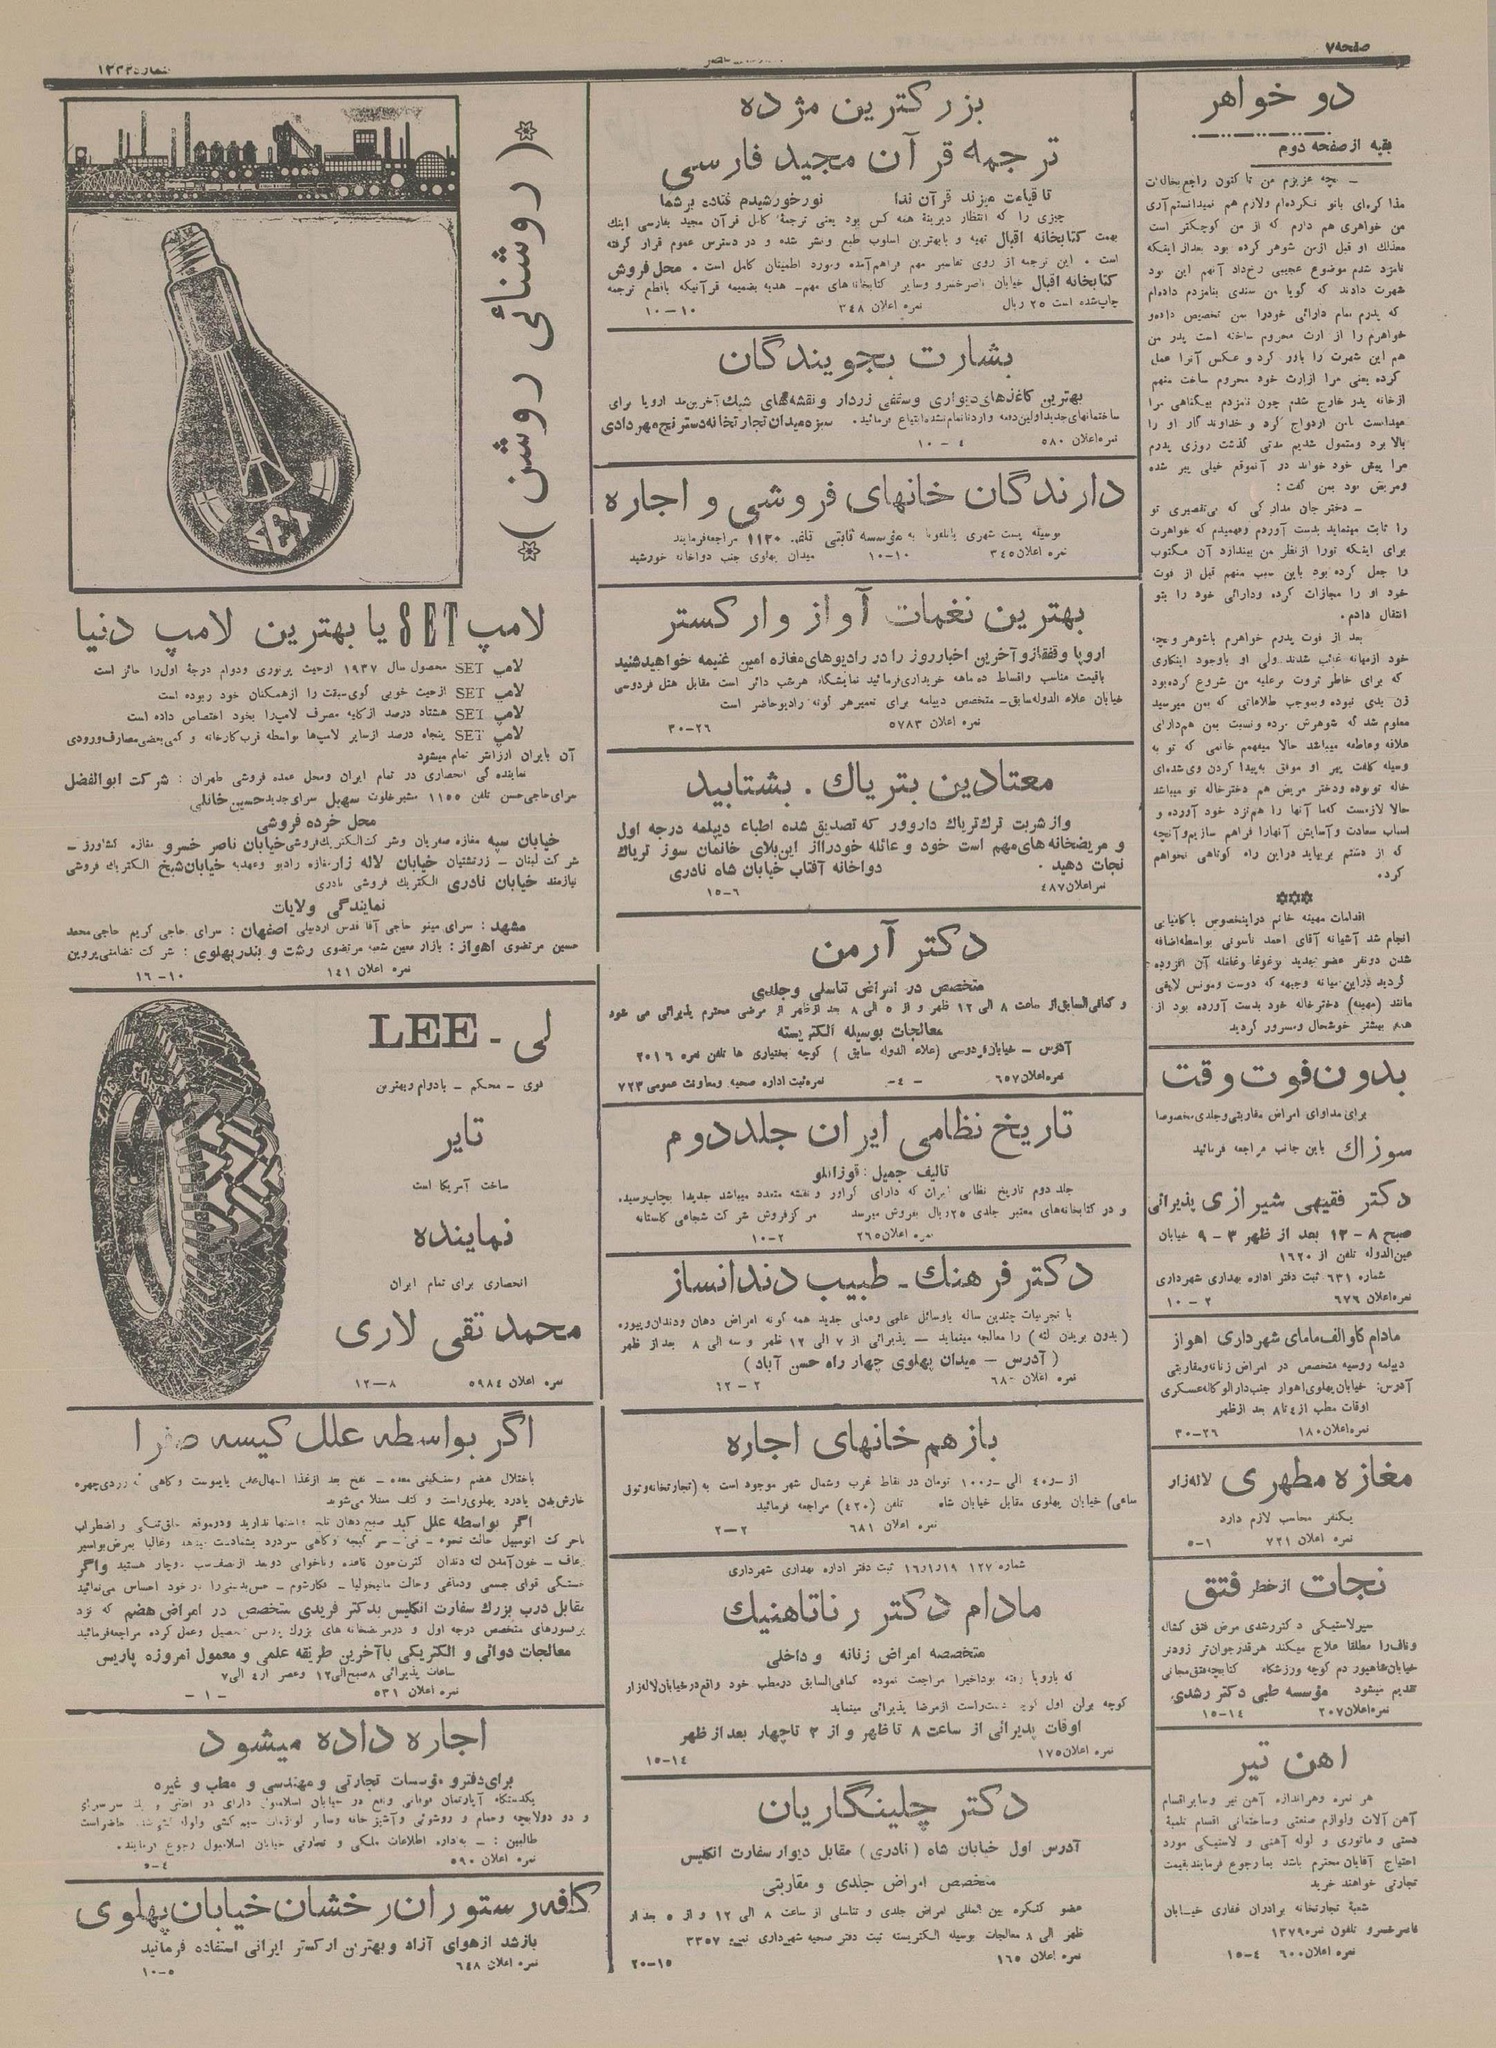 صفحه ۷
شماره ۱۳۳۳
دو خواهر
بقیه از صفحه دوم
ـ بچه عزیزم من تا کنون راجع بخاله‌ات
مذاکره‌ای بانو نکرده‌ام ولازم هم نمیدانستم آری
من خواهری هم دارم که از من کوچکتر است
معذلك او قبل از من شوهر کرده بود بعداز اینکه
نامزد شدم موضوع عجیبی رخداد آنهم این بود
شهرت دادند که گویا من سندی بنامزدم داده‌ام
که پدرم تمام دارائی خودرا بمن تخصیص داده و
خواهرم را از ارث محروم ساخته است پدر من
هم این شهرت را باور کرد و عکس آنرا عمل
کرده یعنی مرا ازارث خود محروم ساخت منهم
ازخانه پدر خارج شدم چون نامزدم بیگناهی مرا
میدانست بامن ازدواج کرد و خداوند کار او را
بالا برد ومتمول شدیم مدتی گذشت روزی پدرم
مرا پیش خود خواند در آنموقع خیلی پیر شده
ومریض بود بمن گفت:
ـ دختر جان مدارکی که بی‌تقصیری تو
را ثابت مینماید بدست آوردم وفهمیدم که خواهرت
برای اینکه تورا ازنظر من بیندازد آن مکتوب
را جعل کرده بود باین سبب منهم قبل از فوت
خود او را مجازات کرده ودارائی خود را بتو
انتقال دادم.
بعد از فوت پدرم خواهرم باشوهر وبچه
خود ازمیانه غائب شدند ولی او باوجود اینکاری
که برای خاطر ثروت برعلیه من شروع کرده بود
زن بدی نبوده وبموجب اطلاعاتی که بمن میرسید
معلوم شد که شوهرش مرده ونسبت بمن هم دارای
علاقه وعاطفه میباشد حالا میفهمم خانمی که تو به
وسیله کلفت پیر او موفق به پیدا کردن وی شده‌ای
خاله تو بوده ودختر مریض هم دخترخاله تو میباشد
حالا لازمست که‌ما آنها را هم‌نزد خود آورده و
اسباب سعادت وآسایش آنهارا فراهم سازیم وآنچه
که از دستم بربیاید دراین راه کوتاهی نخواهم
کرد.
***
اقدامات مهینه خانم دراینخصوص باکامیابی
انجام شد آشیانه آقای احمد ناسوتی بواسطه اضافه
شدن دونفر عضو جدید برغوغا وغلغله آن افزوده
گردید دراین میانه وجیهه که دوست ومونس لایقی
مانند (مهینه) دخترخاله خود بدست آورده بود از
همه بیشتر خوشحال ومسرور گردید
بدون فوت وقت
برای مداوای امراض مقاربتی وجلدی مخصوصا
سوزاك باین جانب مراجعه فرمائید
دکتر فقیهی شیرازی پذیرائی
صبح ۸ - ۱۲ بعد از ظهر ۳ - ۹ خیابان
عین‌الدوله تلفن از ۱۶۲۰
شماره ۶۳۱ ثبت دفتر اداره بهداری شهرداری
نمره اعلان ۶۷۶ ۲ - ۱۰
مادام کاوالف مامای شهرداری اهواز
دیپلمه روسیه متخصص در امراض زنانه ومقاربتی
آدرس: خیابان پهلوی اهواز جنب دارالوکاله عسکری
اوقات مطب از ۴ تا ۸ بعد ازظهر
نمره اعلان ۱۸۰ ۲۶-۳۰
مغازه مطهری لاله‌زار
یکنفر محاسب لازم دارد
نمره اعلان ۷۲۱ ۱-۵
نجات از خطر فتق
سیر لاستیکی دکتر رشدی مرض فتق کشاله
وناف را مطلقا علاج میکند هرقدر جوان‌تر زودتر
خیابان شاهپور دم کوچه ورزشگاه کتابچه فتق مجانی
تقدیم میشود مؤسسه طبی دکتر رشدی
نمره اعلان ۲۰۷ ۱۴-۱۵
اهن تیر
هر نمره وهراندازه آهن تیر وسایراقسام
آهن آلات ولوازم صنعتی وساختمانی اقسام تلمبهٔ
دستی و ماتوری و لوله آهنی و لاستیکی مورد
احتیاج آقایان محترم باشد بما رجوع فرمایند بقیمت
تجارتی خواهند خرید
شعبهٔ تجارتخانه برادران غفاری خیابان
ناصرخسرو تلفون نمره ۱۳۷۹
نمره اعلان ۶۰۰ ۴-۱۵
بزرگترین مژده
ترجمه قرآن مجید فارسی
تا قیامت میزند قرآن ندا نورخورشیدم فتاده بر شما
چیزی را که انتظار دیرینهٔ همه کس بود یعنی ترجمهٔ کامل قرآن مجید بفارسی اینك
بهمت کتابخانه اقبال تهیه و بابهترین اسلوب طبع ونشر شده و در دسترس عموم قرار گرفته
است . این ترجمه از روی تفاسیر مهم فراهم آمده ومورد اطمینان کامل است . محل فروش
کتابخانه اقبال خیابان ناصرخسرو وسایر کتابخانه‌های مهم- هدیه بضمیمه قرآنیکه باقطع ترجمه
چاپ‌شده است ۲۵ ریال نمره اعلان ۳۴۸ ۱۰-۱۰
بشارت بجویندگان
بهترین کاغذهای دیواری وسقفی زردار و نقشه‌های شیك آخرین مد اروپا برای
ساختمانهای جدید اولین دفعه وارد تا تمام نشده ابتیاع فرمائید. سبزه میدان تجارتخانه دسترنج مهردادی
نمره اعلان ۵۸۰ ۴ - ۱۰
دارندگان خانهای فروشی و اجاره
بوسیله پست شهری یاتلفونا به مؤسسه ثابتی تلفن ۱۱۳۰ مراجعه فرمایند
نمره اعلان ۳۴۵ ۱۰-۱۰ میدان پهلوی جنب دواخانه خورشید
بهترین نغمات آواز وارکستر
اروپا وقفقاز وآخرین اخبار روز را در رادیوهای مغازه امین غنیمه خواهید شنید
باقیمت مناسب واقساط ده ماهه خریداری فرمائید نمایشگاه هرشب دائر است مقابل هتل فردوسی
خیابان علاءالدوله سابق- متخصص دیپلمه برای تعمیر هر گونه رادیو حاضر است
نمره اعلان ۵۷۸۳ ۲۶-۳۰
معتادین بتریاك . بشتابید
واز شربت ترك تریاك داروور که تصدیق شده اطباء دیپلمه درجه اول
و مریضخانه‌های مهم است خود و عائله خودرا از این بلای خانمان سوز تریاك
نجات دهید . دواخانه آفتاب خیابان شاه نادری
نمره اعلان ۴۸۷ ۶-۱۵
دکتر آرمن
متخصص در امراض تناسلی وجلدی
و کمافی السابق از ساعت ۸ الی ۱۲ ظهر و از ۵ الی ۸ بعد ازظهر از مرضی محترم پذیرائی می شود
معالجات بوسیله الکتریسته
آدرس - خیابان فردوسی (علاء الدوله سابق) کوچه بختیاری ها تلفن نمره ۲۰۱۶
نمره اعلان ۶۵۷ -۴- نمره ثبت اداره صحیه ومعاونت عمومی ۷۲۳
تاریخ نظامی ایران جلد دوم
تالیف جمیل: قوزانلو
جلد دوم تاریخ نظامی ایران که دارای گراور و نقشه متعدد میباشد جدیدا بچاپ رسید.
و در کتابخانه‌های معتبر جلدی ۲۵ ریال بفروش میرسد مرکز فروش شرکت شجاعی گلستانه
نمره اعلان ۲۶۵ ۲-۱۰
دکتر فرهنك ـ طبیب دندانساز
با تجربیات چندین ساله باوسائل علمی وعملی جدید همه گونه امراض دهان ودندان وپیوره
(بدون بریدن لثه) را معالجه مینماید - پذیرائی از ۷ الی ۱۲ ظهر و سه الی ۸ بعد از ظهر
(آدرس - میدان پهلوی چهار راه حسن آباد)
نمره اعلان ۶۸۰ ۲ - ۱۲
بازهم خانهای اجاره
از ۴۰ الی ۱۰۰ تومان در نقاط غرب وشمال شهر موجود است به (تجارتخانه وثوقی
ساعی) خیابان پهلوی مقابل خیابان شاه تلفن (۴۲۰) مراجعه فرمائید
نمره اعلان ۶۸۱ ۲-۲
شماره ۱۲۷ ۱۶/۱/۱۹ ثبت دفتر اداره بهداری شهرداری
مادام دکتر رناتاهنیك
متخصصه امراض زنانه و داخلی
که باروپا رفته بود اخیرا مراجعت نموده کمافی السابق درمطب خود واقع در خیابان لاله‌زار
کوچه برلن اول کوچه دست راست از مرضا پذیرائی مینماید
اوقات پذیرائی از ساعت ۸ تا ظهر و از ۲ تا چهار بعد از ظهر
نمره اعلان ۱۷۵ ۱۴-۱۵
دکتر چلینگاریان
آدرس اول خیابان شاه (نادری) مقابل دیوار سفارت انگلیس
متخصص امراض جلدی و مقاربتی
عضو کنگره بین المللی امراض جلدی و تناسلی از ساعت ۸ الی ۱۲ و از ۵ بعد از
ظهر الی ۸ معالجات بوسیله الکتریسته ثبت دفتر صحیه شهرداری نمره ۳۳۵۷
نمره اعلان ۱۶۵ ۱۵-۲۰
(روشنائی روشن)
SET
لامپ SET یا بهترین لامپ دنیا
لامپ SET محصول سال ۱۹۳۷ ازحیث پرنوری ودوام درجهٔ اول را حائز است
لامپ SET ازحیث خوبی گوی سبقت را ازهمکنان خود ربوده است
لامپ SET هشتاد درصد ازکلیه مصرف لامپ را بخود اختصاص داده است
لامپ SET پنجاه درصد ازسایر لامپ‌ها بواسطه قرب کارخانه و کمی بعضی مصارف ورودی
آن بایران ارزانتر تمام میشود
نماینده گی انحصاری در تمام ایران ومحل عمده فروشی طهران: شرکت ابوالفضل
سرای حاجی حسن تلفن ۱۱۵۵ مشیرخلوت سهیل سرای جدید حسین خانلی
محل خرده فروشی
خیابان سپه مغازه صفریان وشرکت الکتریك فروشی خیابان ناصر خسرو مغازه کشاورز -
شرکت لبنان - زرتشتیان خیابان لاله زار مغازه رادیو ومهدیه خیابان شیخ الکتریك فروشی
نیازمند خیابان نادری الکتریك فروشی نادری
نمایندگی ولایات
مشهد: سرای مینو حاجی آقا قدس اردبیلی اصفهان: سرای حاجی کریم حاجی محمد
حسین مرتضوی اهواز: بازار معین شعبه مرتضوی رشت و بندرپهلوی: شرکت تضامنی پروین
نمره اعلان ۱۴۱ ۱۰-۱۶
لی - LEE
قوی - محکم - بادوام وبهترین
تایر
ساخت آمریکا است
نماینده
انحصاری برای تمام ایران
محمد تقی لاری
نمره اعلان ۵۹۸۴ ۸-۱۲
اگر بواسطه علل کیسه صفرا
باختلال هضم وسنگینی معده - نفخ بعد ازغذا اسهال عفن یایبوست وگاهی زردی چهره
خارش بدن یادرد پهلوی راست و کتف مبتلا می‌شوید
اگر بواسطه علل کبد صبح دهان تلخ واشتها ندارید ودرموقع اضطراب
معالجات دوائی و الکتریکی باآخرین طریقه علمی و معمول امروزه پاریس
مقابل درب بزرك سفارت انگلیس بدکتر فریدی متخصص در امراض هضم که نزد
ساعات پذیرائی ۸ صبح الی ۱۲ وعصر از ۴ الی ۷
نمره اعلان ۵۳۱ -۱-
اجاره داده میشود
برای دفتر و مؤسسات تجارتی و مهندسی و مطب و غیره
یکدستگاه آپارتمان فوقانی واقع در خیابان اسلامبول دارای
و دو دولابچه وحمام و روشوئی وآشپز خانه وسایر لوازمات سیم کشی ولوله کشی حاضر است
طالبین: - به اداره اطلاعات ملکی و تجارتی خیابان اسلامبول رجوع فرمایند.
نمره اعلان ۵۹۰ ۴-۵
کافه رستوران رخشان خیابان پهلوی
باز شد ازهوای آزاد وبهترین ارکستر ایرانی استفاده فرمائید
نمره اعلان ۶۴۸ ۵-۱۰